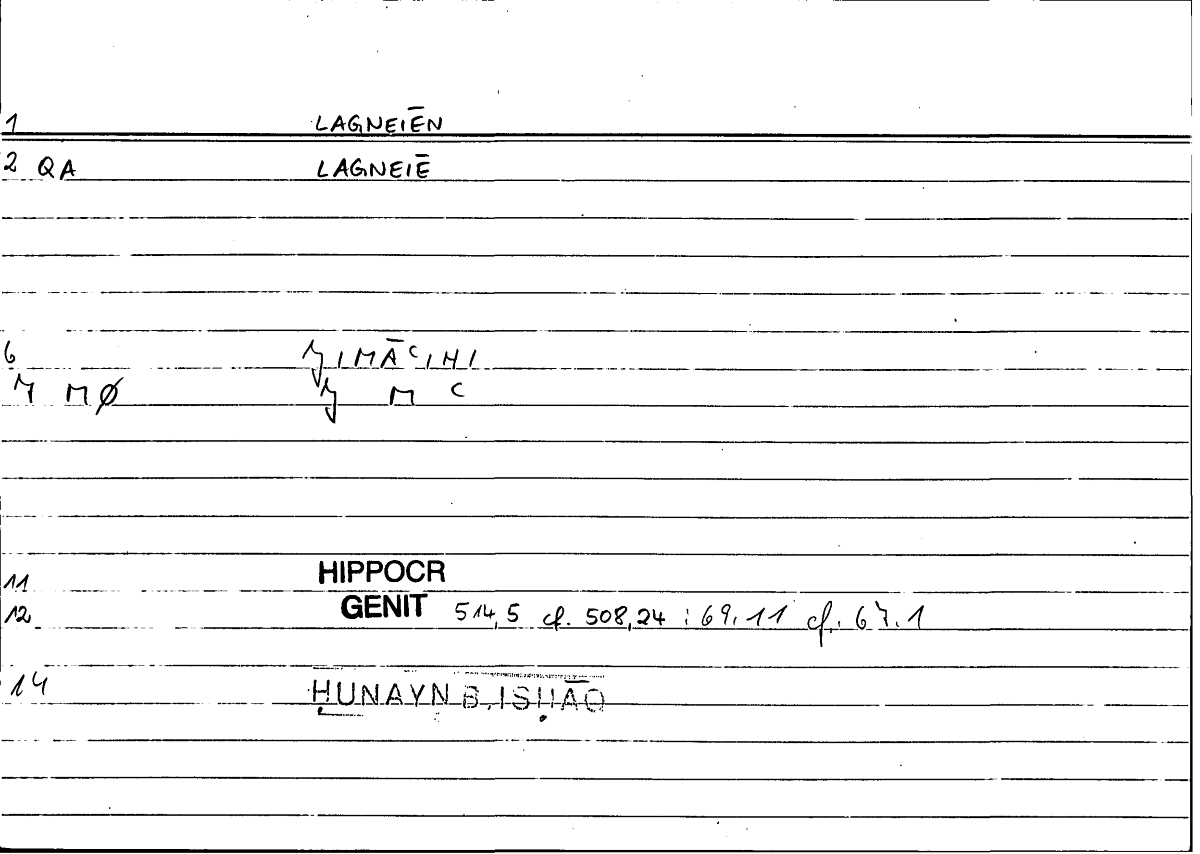 1 LAGNEIĒN
2 QA LAGNEIĒ
6 ǦIMĀʿIHI
7 MØ Ǧ M ʿ
11 HIPPOCR
12 GENIT 514,5 cf. 508,24 : 69.11 cf. 67.1
14 ḤUNAYN B. ISḤĀQ